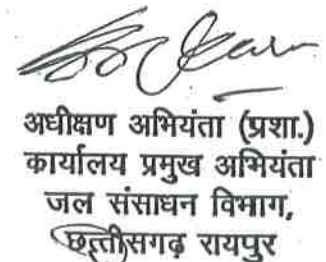 अधीक्षण अभियंता (प्रशा.)
कार्यालय प्रमुख अभियंता
जल संसाधन विभाग,
छत्तीसगढ़ रायपुर